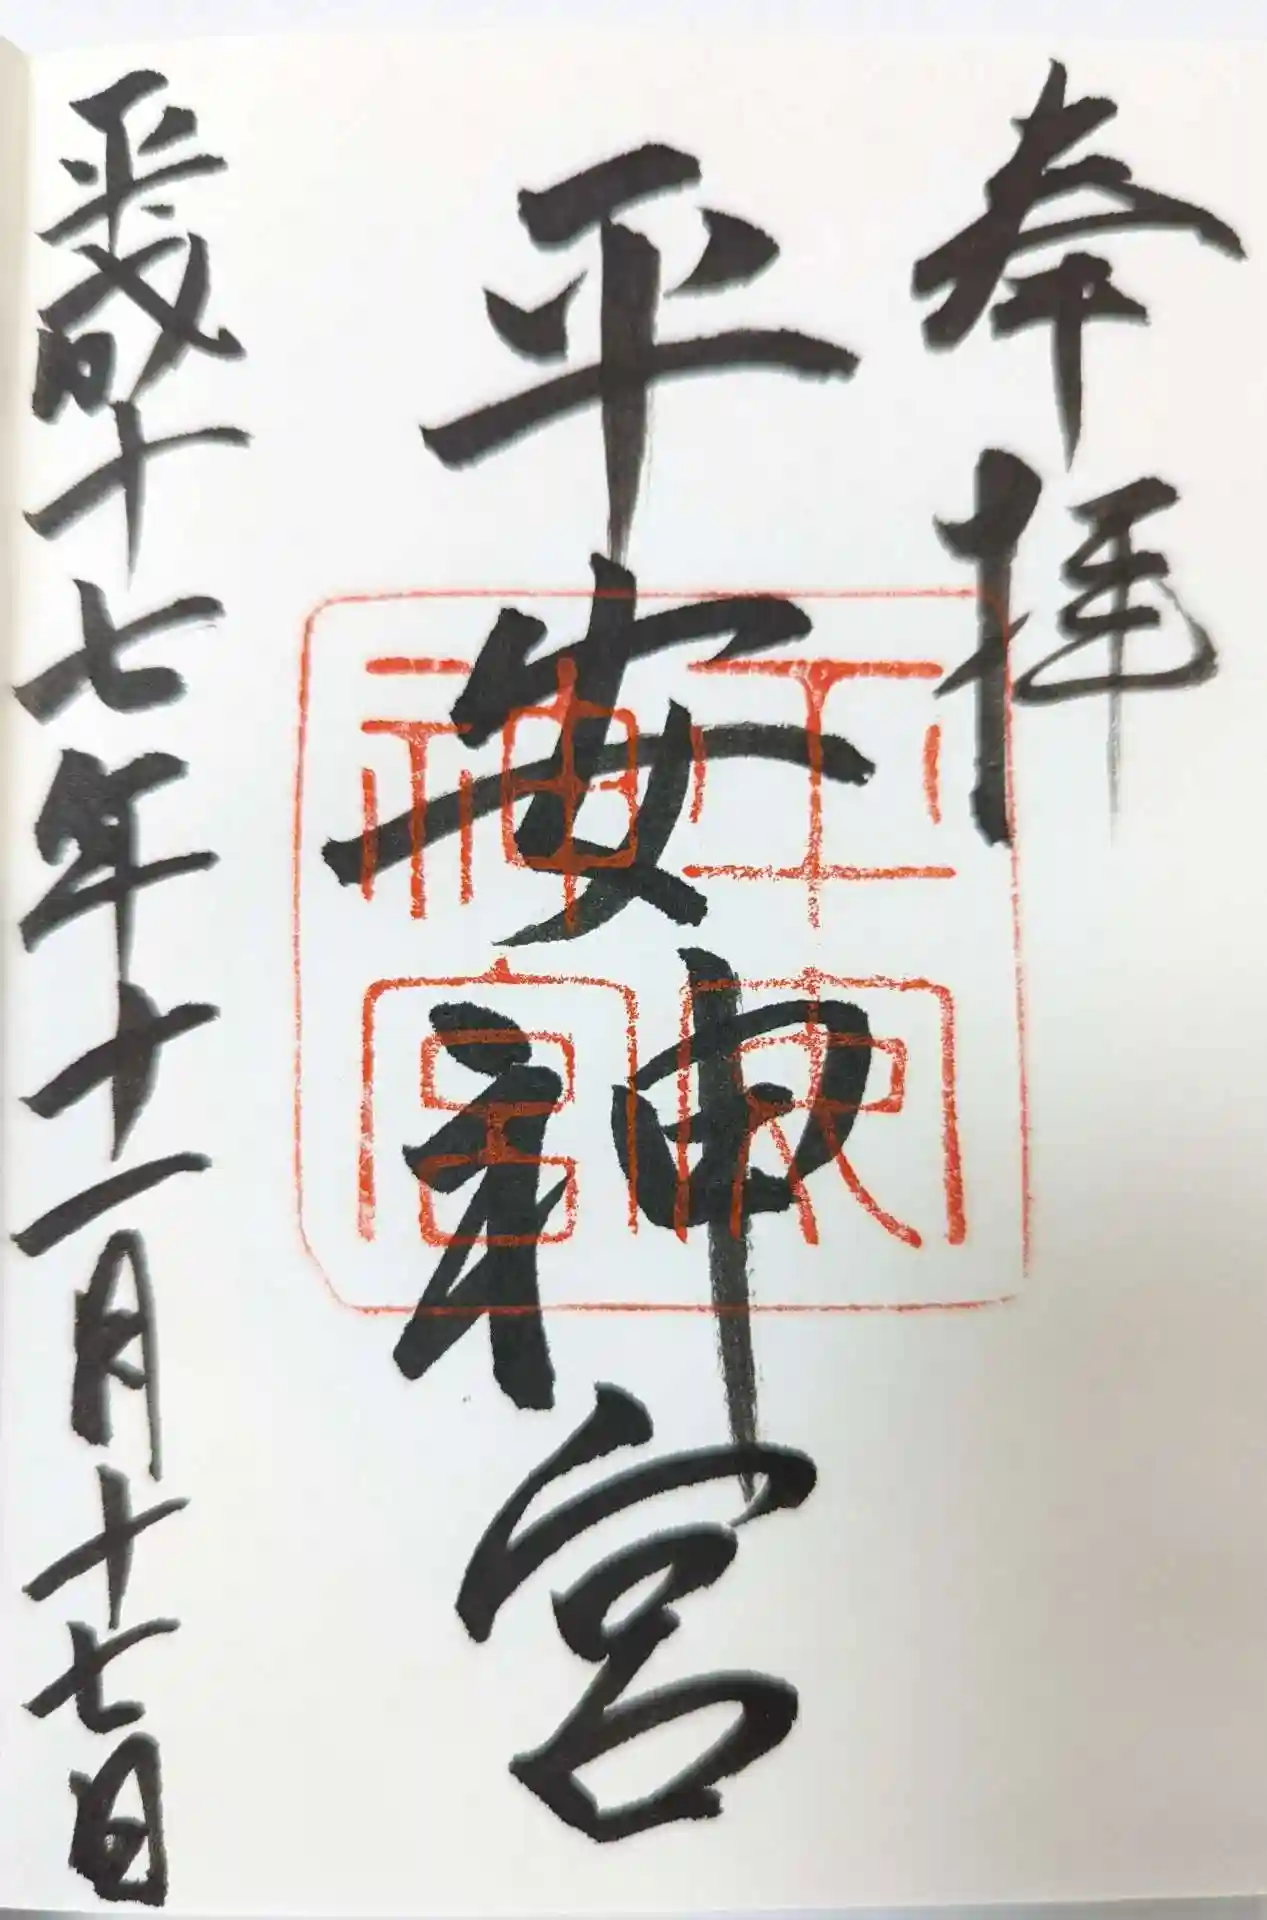 奉拝
平安神宮
平安神宮
平成十七年十一月十七日